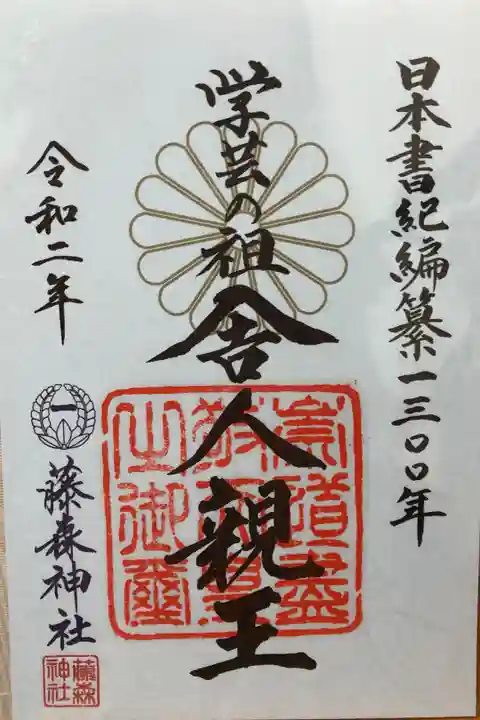 日本書紀編纂一三〇〇年
学芸の祖 舎人親王
崇道盡
之御璽
令和二年
一
藤森神社
藤森
神社